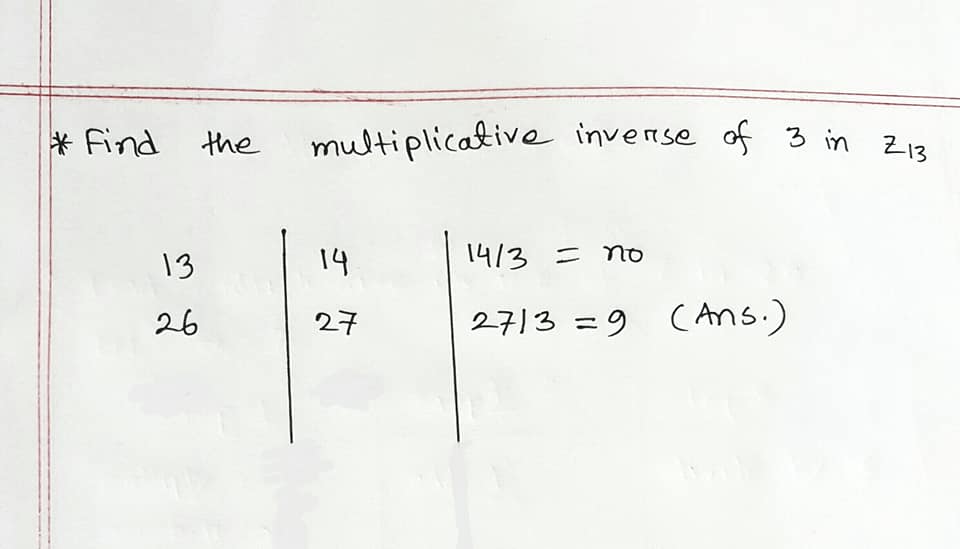 * Find the multiplicative inverse of 3 in Z13
13 14 14/3 = no
26 27 27/3 = 9 (Ans.)